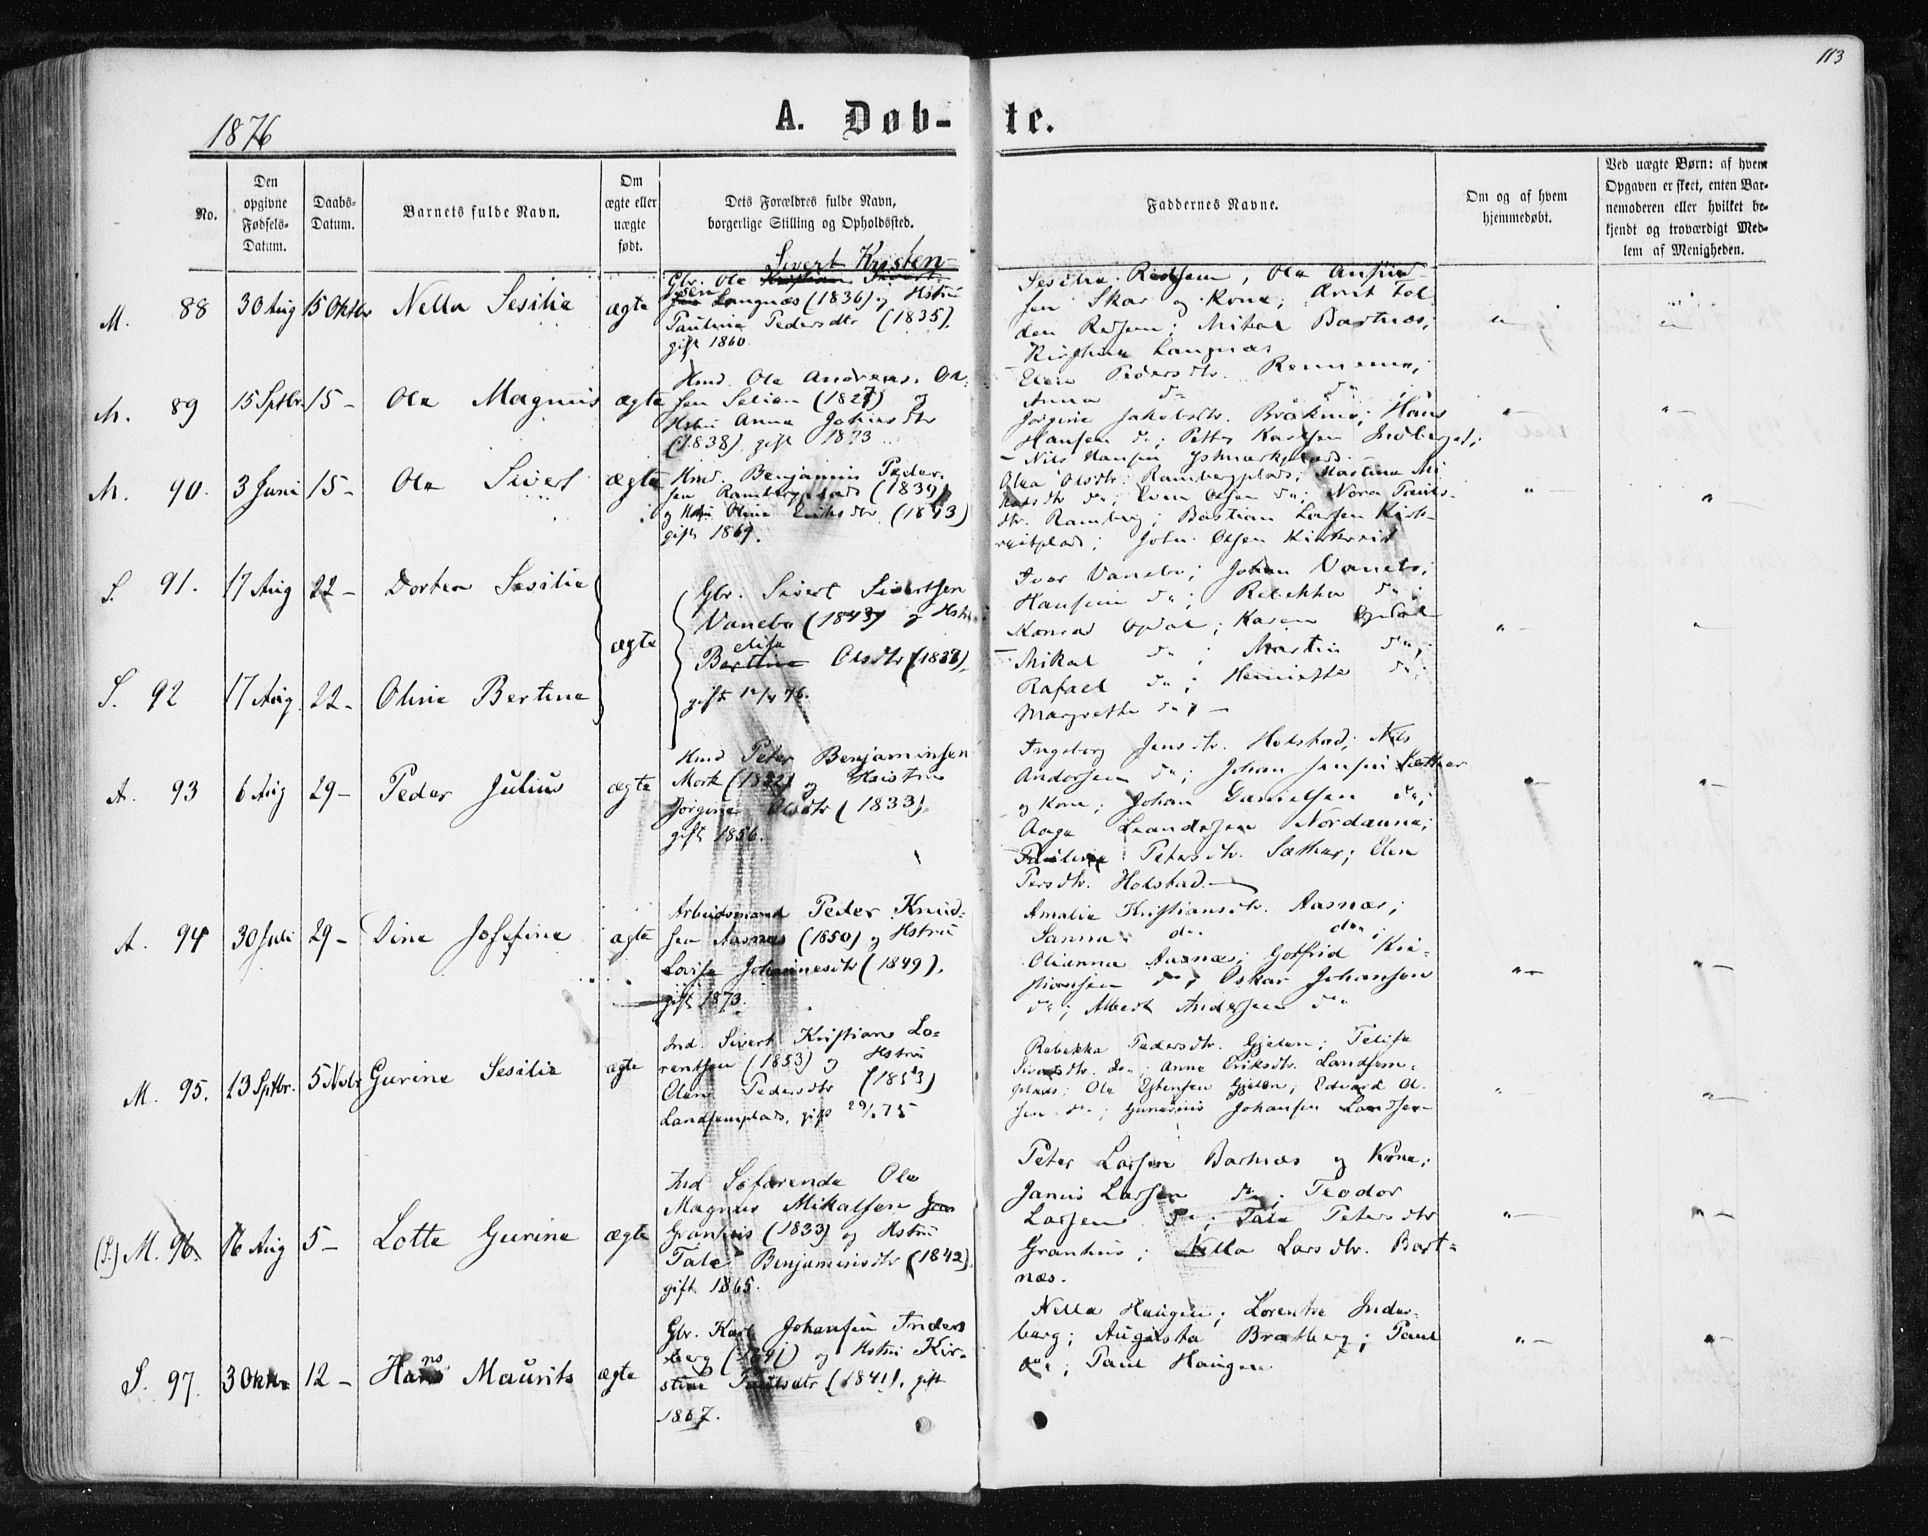 113
1876
A. Døb-
te.
No.
Den
opgivne
Fødsels-
Datum.
Daabs-
Datum.
Barnets fulde Navn.
Om
ægte eller
uægte
født.
Dets Forældres fulde Navn,
borgerlige Stilling og Opholdssted.
Faddernes Navne.
Om og af hvem
hjemmedøbt.
Ved uægte Børn: af hvem
Opgaven er skeet, enten Bar-
nemoderen eller hvilket be-
kjendt og troværdigt Med-
lem af Menigheden.
M. 88 30 Aug 15 Oktbr Nella Sesilie ægte
Sivert Kristen-
Gbr. Ola
sen Langnæs (1836) og Hstru
Pauline Pedersdtr (1835),
gift 1860.
Sesilia Ola
sen Skar og Kone; Arnt Fol
Mikal Bartnæs;
Langnæs
M. 89 15 Sptbr. 15 - Ole Magnus ægte
Hmd. Ole Andreas Ol-
sen Selian (1827) og
Hstru Anna Johnsdtr
(1838), gift 1873
Elen Pedersdtr.
Anna do
Jørgine Jakobsdtr. Hans
Hansen do; Petter Karlsen
- Nils Hansen
M. 90. 3 Juni 15 - Ole Sivert ægte
Hmd. Benjamin Peder-
sen Rambergplads (1839)
og Hstru Oline Eriksdtr. (1843)
gift 1869.
Olea Olsdtr. Rambergplads; Martina Mi
kalsdtr do; Even Olsen do; Nora Pauls-
dtr. Ramberg; Bastian Larsen Kirk-
reitplads; John Olsen Kirkreit
S. 91. 17 Aug 22 - Dortea Sesilie
ægte
Gbr. Sivert Sivertsen
Vanebo (1843) og Hstru
elisa
Bertine Olsdtr (1838),
gift 12/4 76.
Ivar Vanebo; Johan Vanebo;
Hansine do; Rebekka do;
Konrad Opdal; Karen Opdal
- Mikal do; Martin do;
Rafael do; Henriette do;
Margrethe do; -
S. 92 17 Aug. 22 - Oline Bertine
A. 93 6 Aug 29 - Peder Julius ægte
Hmd Peter Benjaminsen
Mork (1832) og Hustru
Jørgine Olsdtr (1833)
gift 1856.
Ingeborg Jensdtr. Holstad; Nils
Andersen do; Johan Jensen Sæther
og Kone; Johan Danielsen do;
Aage Leandersen Nordanne;
Pauline Petersdtr. Sæther; Elen
Persdtr. Holstad. -
A. 94 30 Juli 29 - Dine Josefine ægte
Arbeidsmand Peder Knud-
sen Aasnæs (1850) og Hstru
Lovise Johannesdtr (1849),
gift 1873.
Amalie Kristiansdtr. Aasnæs;
Sanna do do;
Olianna Aasnæs; Gotfrid Kri-
stiansen do; Oskar Johansen
do; Albert Andersen do
M. 95. 13 Sptbr. 5 Novbr Gurine Sesilie ægte
Ind. Sivert Kristian Lo-
rentsen (1853) og Hstru
Elen Pedersdtr (1853)
Landsemplads, gift 29/ 75
Rebekka Pedersdtr. Gjelen; Felisa
Sivertsdtr. do; Anne Eriksdtr. Landsem-
plads; Ole Estensen Gjelen; Edvard Ol-
sen do; Gunerius Johansen Landsem
(S.) M. 96. 16 Aug 5 - Lotte Gurine ægte
Ind Søfarende Ole
Magnus Mikalsen
Granhus (1833) og Hstru
Tale Benjaminsdtr (1842),
gift 1865.
Peter Larsen Bartnæs og Kone;
Janus Larsen do; Teodor
Larsen do; Tale Petersdtr
Granhus; Nella Larsdtr. Bart-
næs.
S. 97. 3 Oktbr 12 - Hans Maurits ægte
ns
Gbr. Karl Johansen Inders
berg (1841) og Hstru Kir-
stine Paulsdtr (1841), gift
1867.
Nella Haugen; Lorentse Inder-
berg; Augusta Bratberg; Paul
do; Paul Haugen